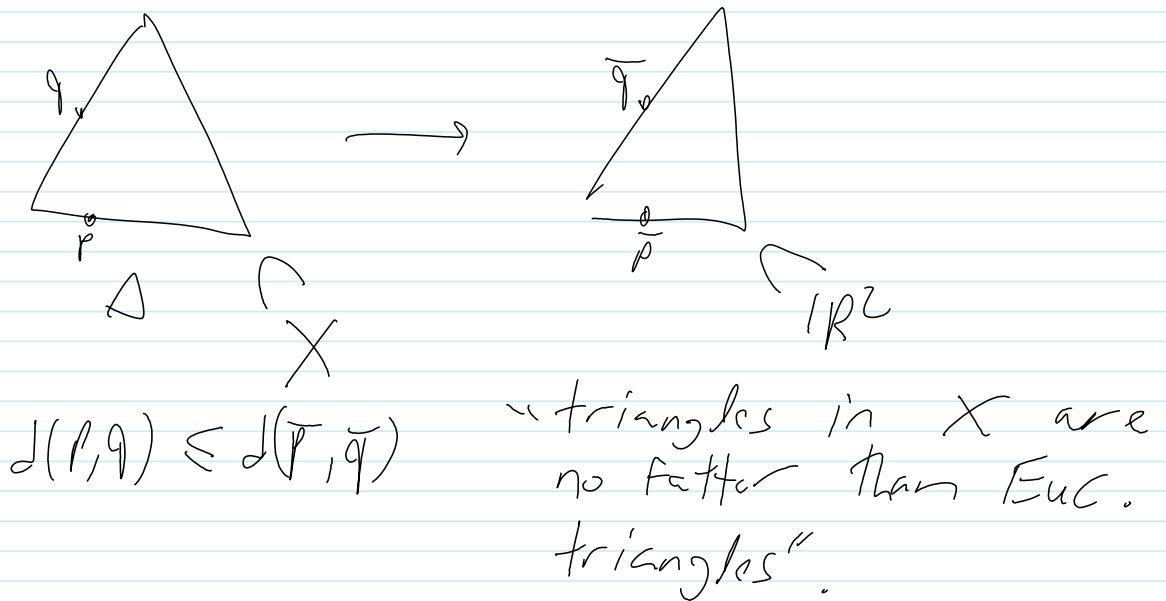 q
q̅
p
p̅
Δ
⊂
X
⊂
ℝ²
d(p,q) ≤ d(p̅,q̅)
"triangles in X are
no fatter than Euc.
triangles".